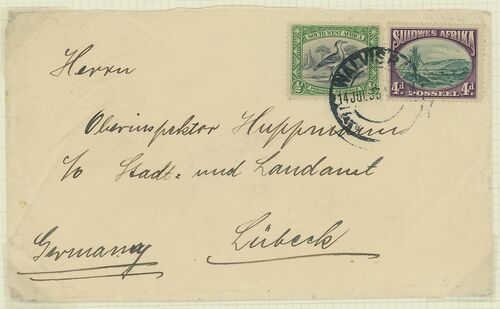 SOUTH WEST AFRICA
½d
POSSEEL
SUIDWES AFRIKA
4d 4d
POSSEEL
14 JUL
Herrn
Oberinspektor Huppmann
c/o Stadt- und Landamt
Germany
Lübeck